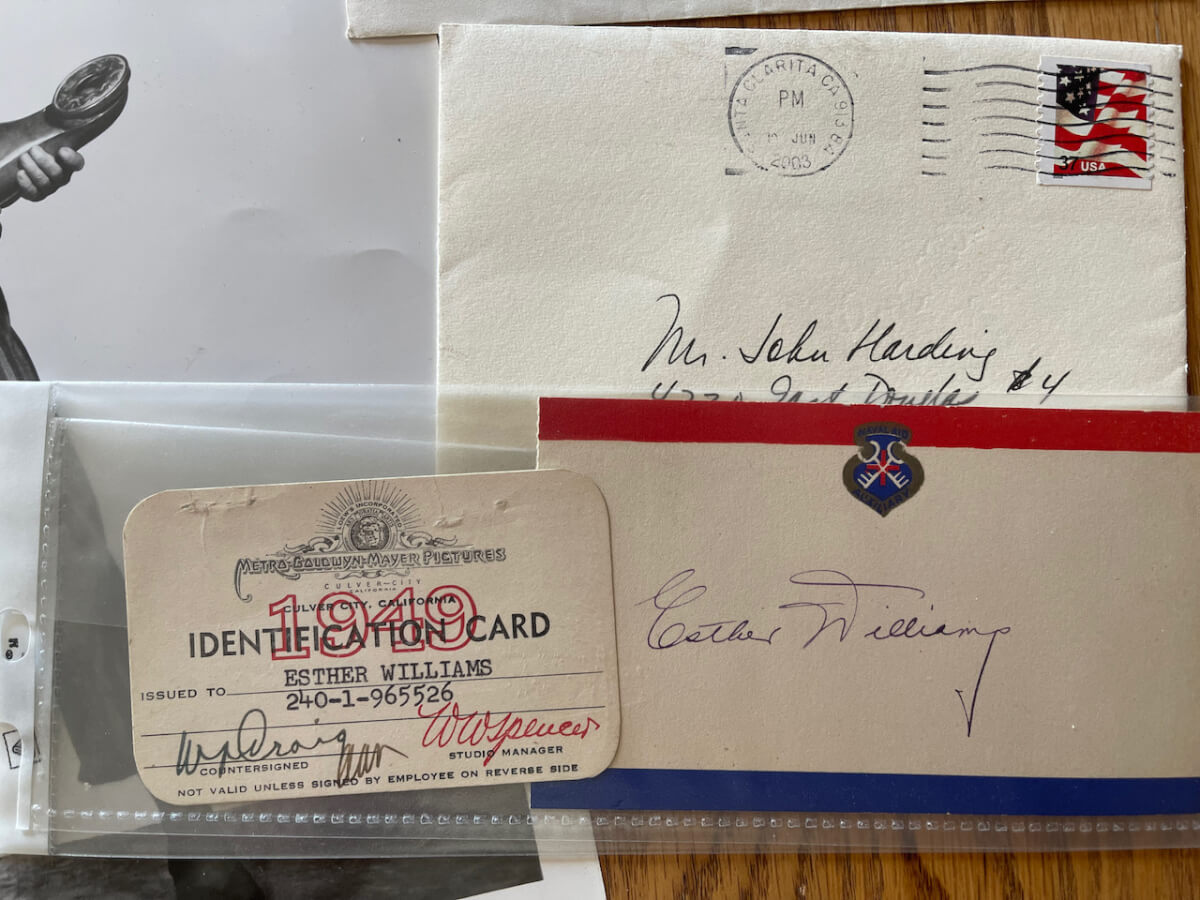 SANTA CLARITA CA 913
PM
JUN
2003
37 USA
Mr. John Harding
#4
NAVAL AID
AUXILIARY
Esther Williams
LOEW'S INCORPORATED
ARS GRATIA ARTIS
METRO-GOLDWYN-MAYER PICTURES
CULVER-CITY
CALIFORNIA
1949
CULVER CITY, CALIFORNIA
IDENTIFICATION CARD
ESTHER WILLIAMS
ISSUED TO
240-1-965526
WWSpencer
COUNTERSIGNED
STUDIO MANAGER
NOT VALID UNLESS SIGNED BY EMPLOYEE ON REVERSE SIDE